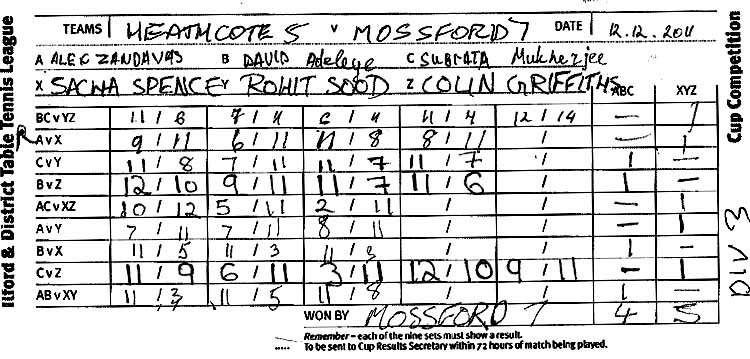 Ilford & District Table Tennis League
TEAMS HEATHCOTE 5 V MOSSFORD 7 DATE 12.12.2011
A ALEC ZANDAVAS B DAVID Adeleye C SUBRATA Mukherjee
X SACHA SPENCE Y ROHIT SOOD Z COLIN GRIFFITHS ABC XYZ
BC v YZ 11 / 8 7 / 11 / 11 11 / 4 12 / 14 — 1
A v X 9 / 11 6 / 11 11 / 8 8 / 11 / — 1
C v Y 11 / 8 7 / 11 11 / 7 11 / 7 / 1 —
B v Z 12 / 10 9 / 11 11 / 7 11 / 6 / 1 —
AC v XZ 10 / 12 5 / 11 2 / 11 / / — 1
A v Y 7 / 11 7 / 11 8 / 11 / / — 1
B v X 11 / 5 11 / 3 11 / 3 / / 1 —
C v Z 11 / 9 6 / 11 3 / 11 12 / 10 9 / 11 — 1
AB v XY 11 / 3 11 / 5 11 / 8 / / 1 —
WON BY MOSSFORD 7 4 5
Remember – each of the nine sets must show a result.
..... To be sent to Cup Results Secretary within 72 hours of match being played.
Cup Competition
DIV 3